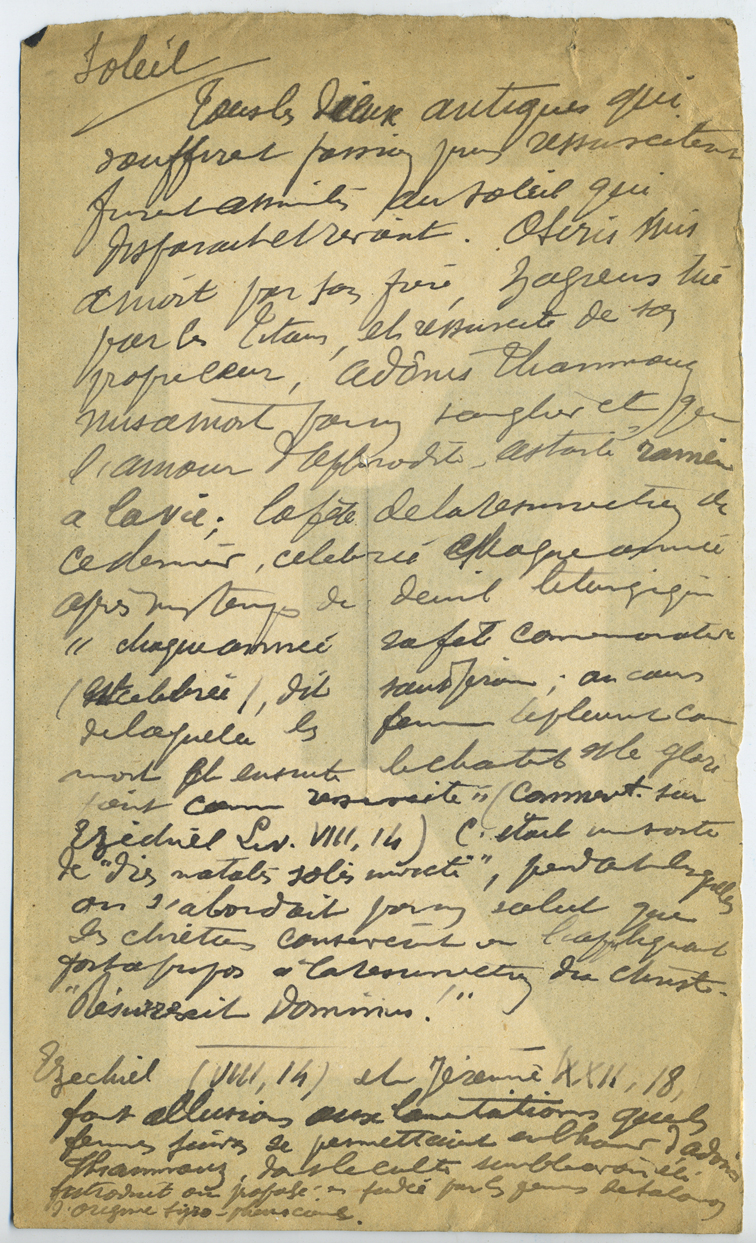 Soleil
Tous les dieux antiques qui
souffrirent passion puis ressusciterent
furent assimilés au soleil qui
disparait et revient. Osiris mis
a mort par son frère, Zagreus tué
par les Titans, et réssuscité de son
propre cœur, Adônis Thammouz
mis a mort par un sanglier et que
l'amour d'Aphrodite-Astarté ramène
a la vie; la fête de la résurrection de
ce dernier, célébrée chaque année
après un temps de deuil liturgique
"chaque année sa fête commemorative
(est célébrée), dit saint Jérôme; au cours
de laquelle les femmes le pleurent comme
mort et ensuite le chantent et le glori-
fient comme ressuscité" (Comment. sur
Ezéchiel Liv. VIII, 14) C'était une sorte
de "dies natalis solis invicti", pendant lesquels
on s'abordait par un salut que
les chrétiens conservèrent en l'appliquant
fort a propos à la résurrection du Christ-
"Résurrexit Dominus!"
Ezechiel (VIII, 14) et Jérémie XXII, 18,
font allusions aux lamentations que les
femmes juives se permettaient en l'honneur d'Adonis
Thammouz, dont le culte semble avoir été
introduit ou propagé en Judée par les femmes de Salomon
d'origine syro-phénicienne.